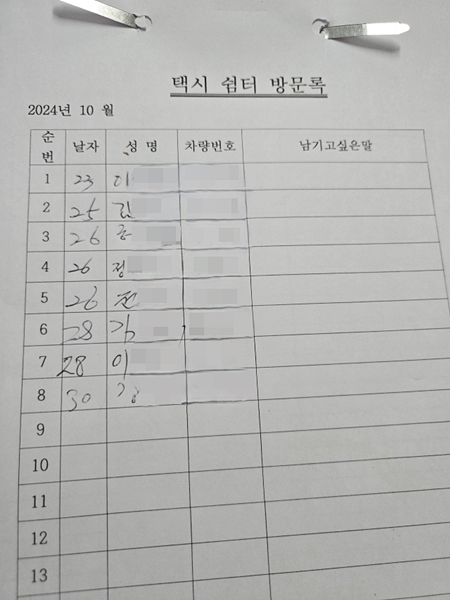 택시 쉼터 방문록
2024년 10 월
순번 날자 성 명 차량번호 남기고싶은말
1 23 이
2 25 김
3 26
4 26 정
5 26 전
6 28 김
7 28 이
8 30 강
9
10
11
12
13